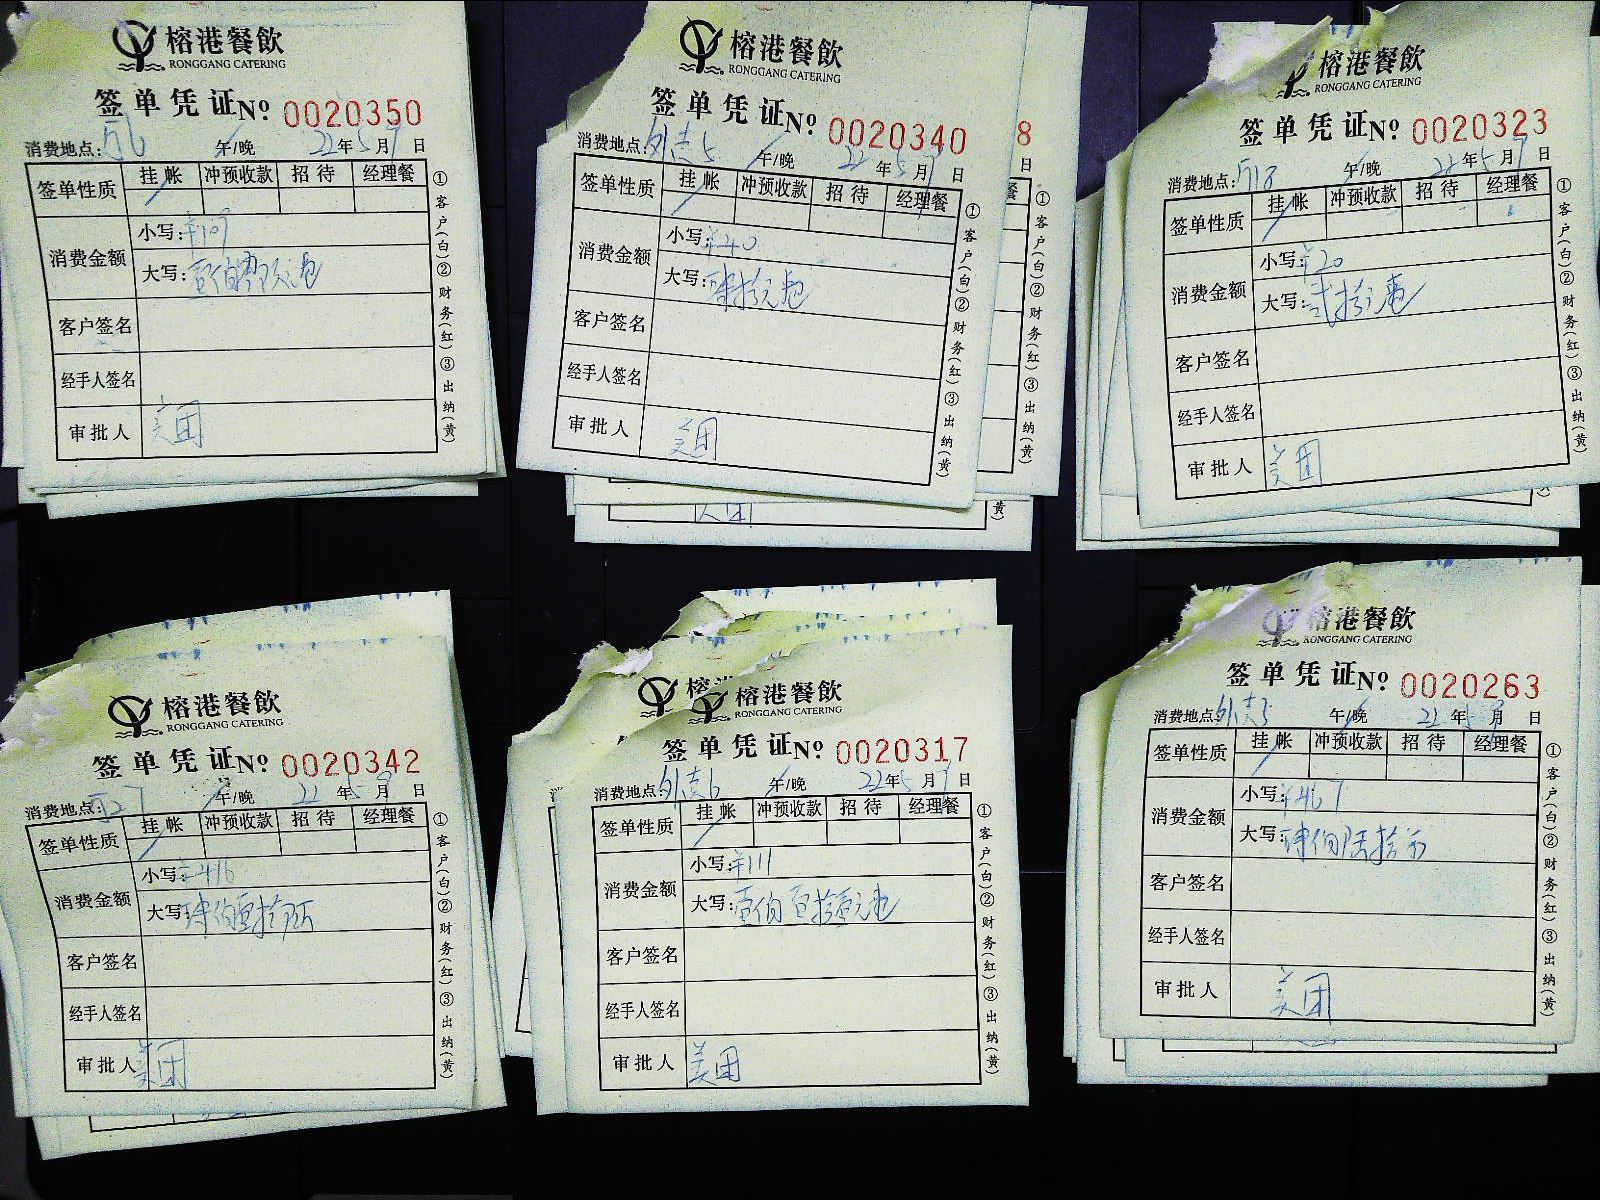 榕港餐飲
RONGGANG CATERING
签单凭证№ 0020350
消费地点: 午/晚 22年5月9日
签单性质 挂帐 冲预收款 招待 经理餐
消费金额
小写:¥109
大写:壹伯零玖元
客户签名
经手人签名
审批人 美团
①客户(白)②财务(红)③出纳(黄)
榕港餐飲
RONGGANG CATERING
签单凭证№ 0020340
消费地点:外卖5 午/晚 22年5月9日
签单性质 挂帐 冲预收款 招待 经理餐
消费金额
小写:¥40
大写:肆拾元
客户签名
经手人签名
审批人 美团
①客户(白)②财务(红)③出纳(黄)
8
日
餐
①客户(白)②财务(红)③出纳(黄)
榕港餐飲
RONGGANG CATERING
签单凭证№ 0020323
消费地点: 午/晚 22年5月9日
签单性质 挂帐 冲预收款 招待 经理餐
消费金额
小写:¥20
大写:弍拾元
客户签名
经手人签名
审批人 美团
①客户(白)②财务(红)③出纳(黄)
榕港餐飲
RONGGANG CATERING
签单凭证№ 0020342
消费地点: 午/晚 22年5月9日
签单性质 挂帐 冲预收款 招待 经理餐
消费金额
小写:¥416
大写:肆伯壹拾
客户签名
经手人签名
审批人 美团
①客户(白)②财务(红)③出纳(黄)
榕港餐飲
RONGGANG CATERING
签单凭证№ 0020317
消费地点:外卖6 午/晚 22年5月9日
签单性质 挂帐 冲预收款 招待 经理餐
消费金额
小写:¥111
大写:壹伯壹拾壹元
客户签名
经手人签名
审批人 美团
①客户(白)②财务(红)③出纳(黄)
榕港餐飲
RONGGANG CATERING
签单凭证№ 0020263
消费地点:外卖5 午/晚 22年5月8日
签单性质 挂帐 冲预收款 招待 经理餐
消费金额
小写:¥467
大写:肆伯陆拾
客户签名
经手人签名
审批人 美团
①客户(白)②财务(红)③出纳(黄)